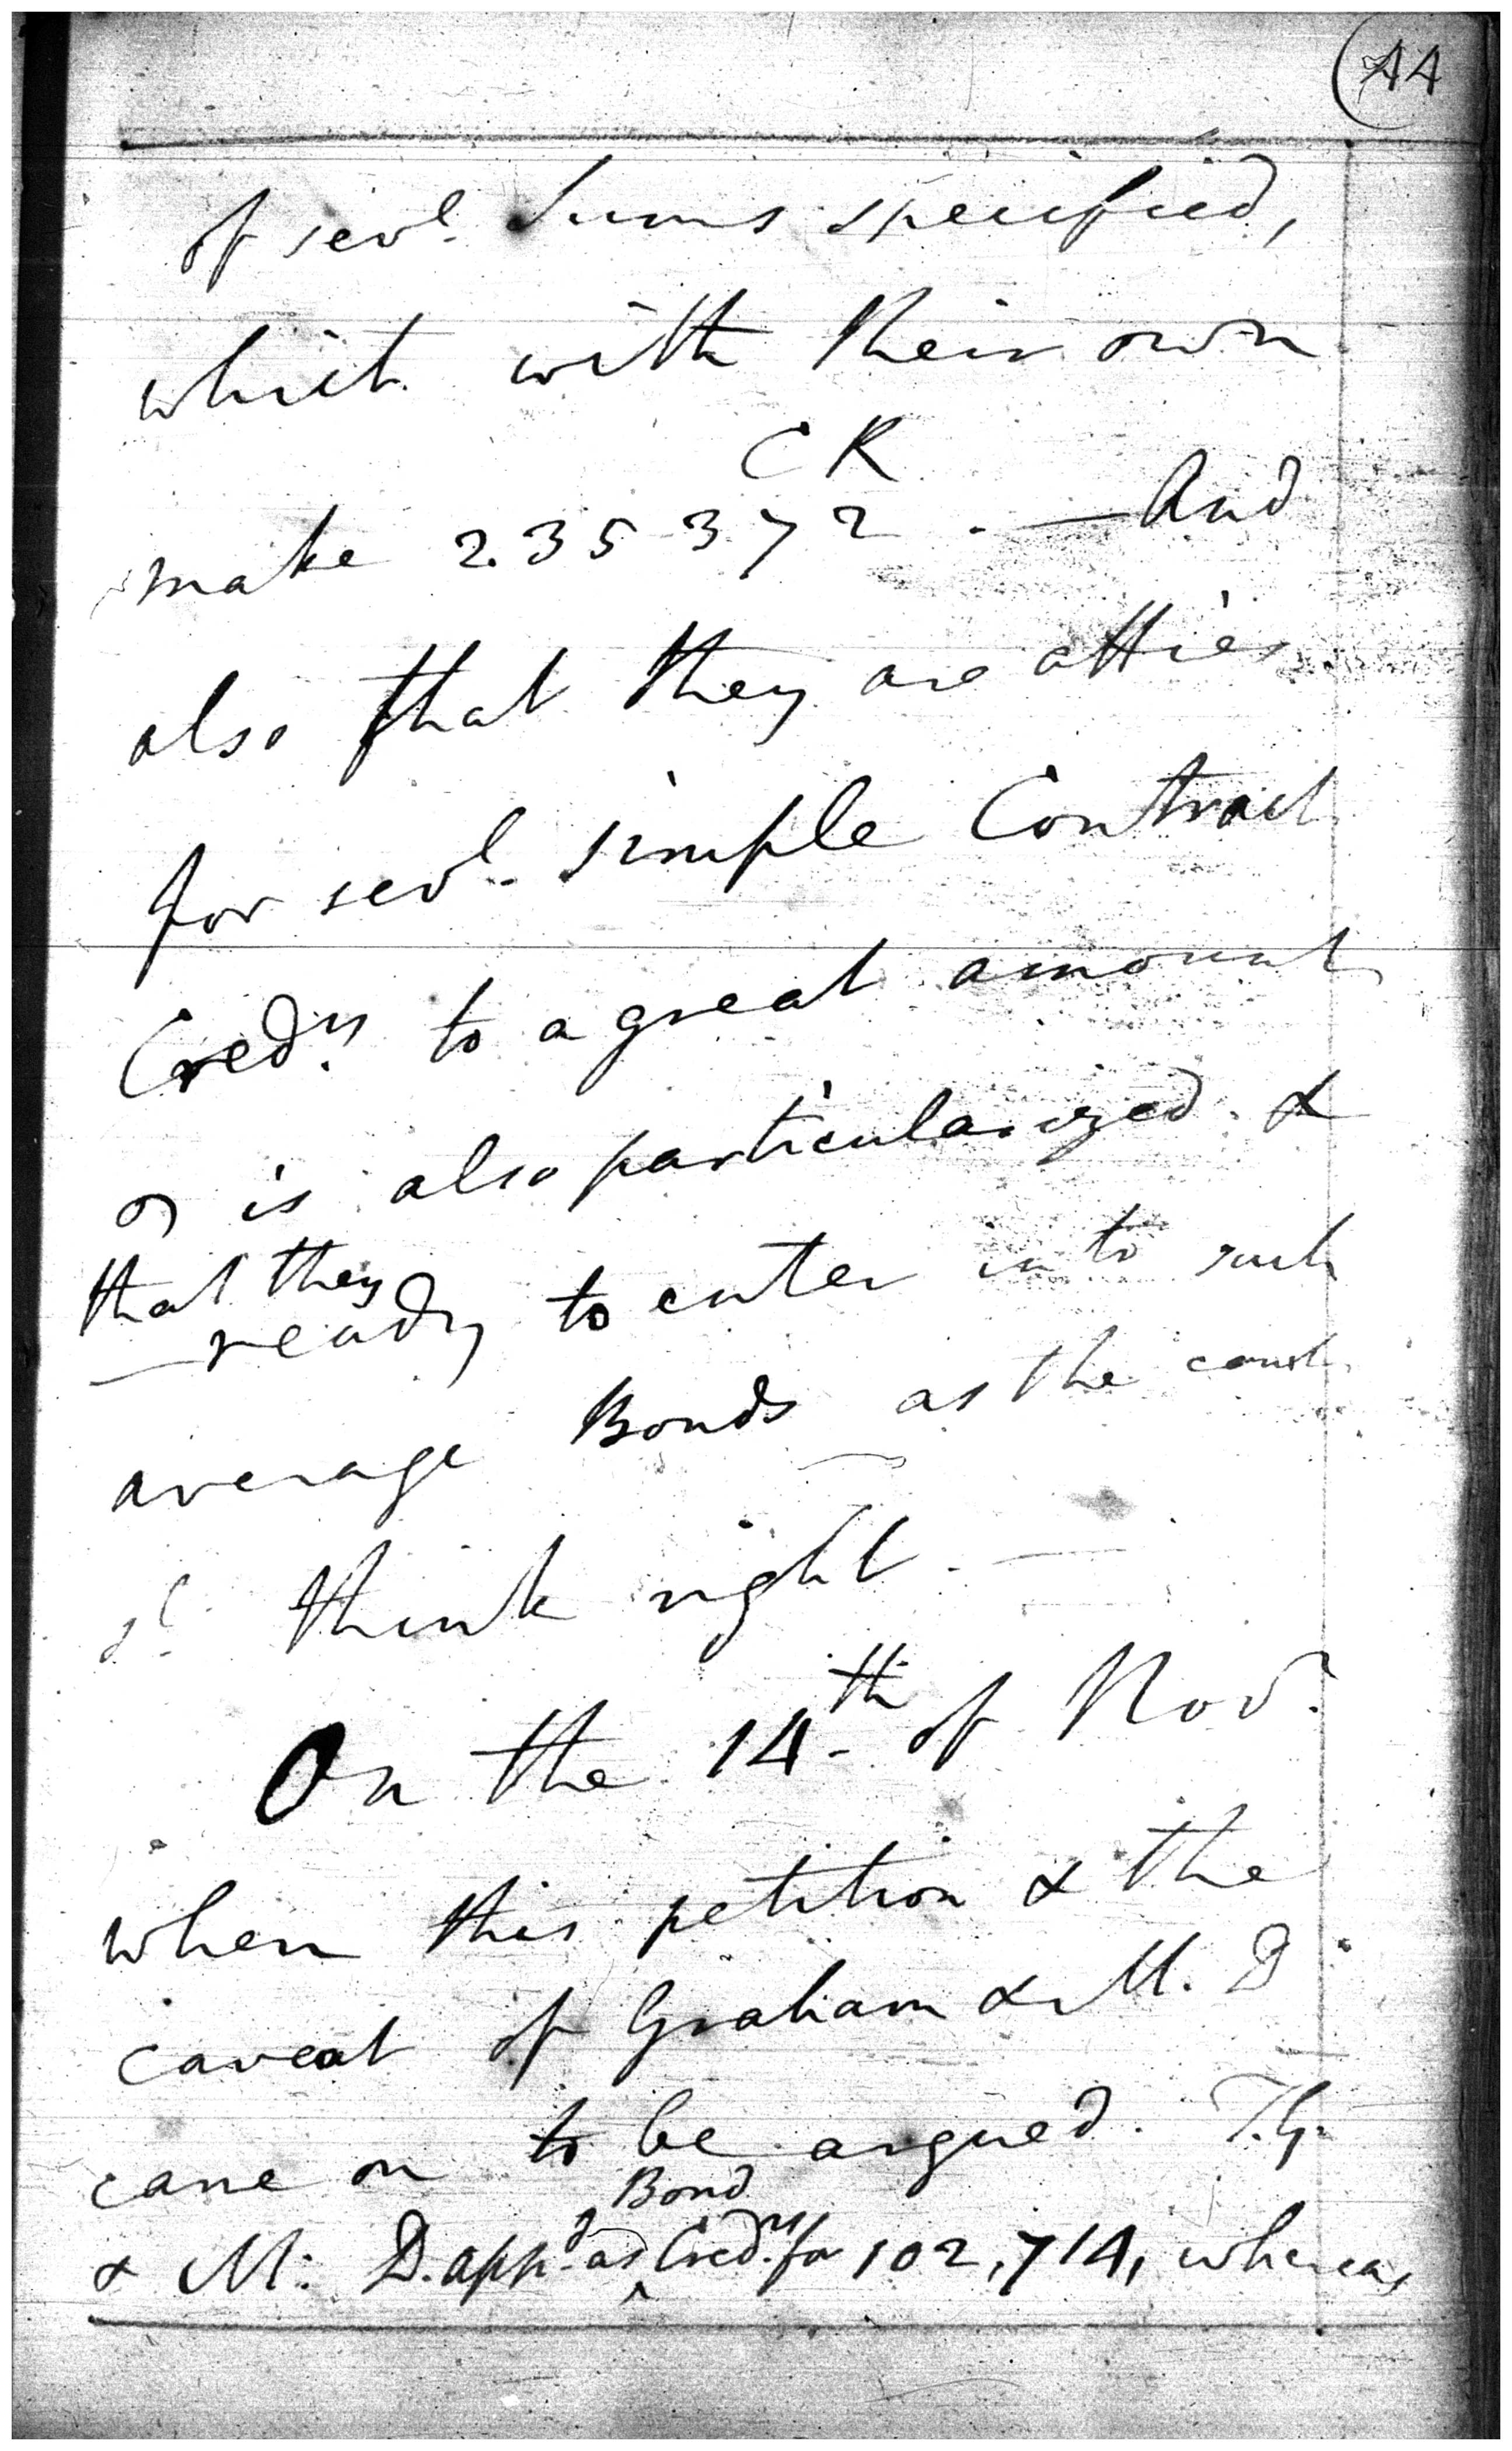 (44
of sevl. Sums specified,
which with their own
CR
make 235372. — And
also that they are atties
for sevl. simple Contract
Credrs. to a great amount
is also particularized &
that they
ready to enter into such
average Bonds as the court
sd. think right. —
On the 14th of Novr.
when this petition & the
caveat of Graham & M. D
came on to be argued. T.G.
Bond
& M: D. appd. as Credrs. for 102,714, whereas